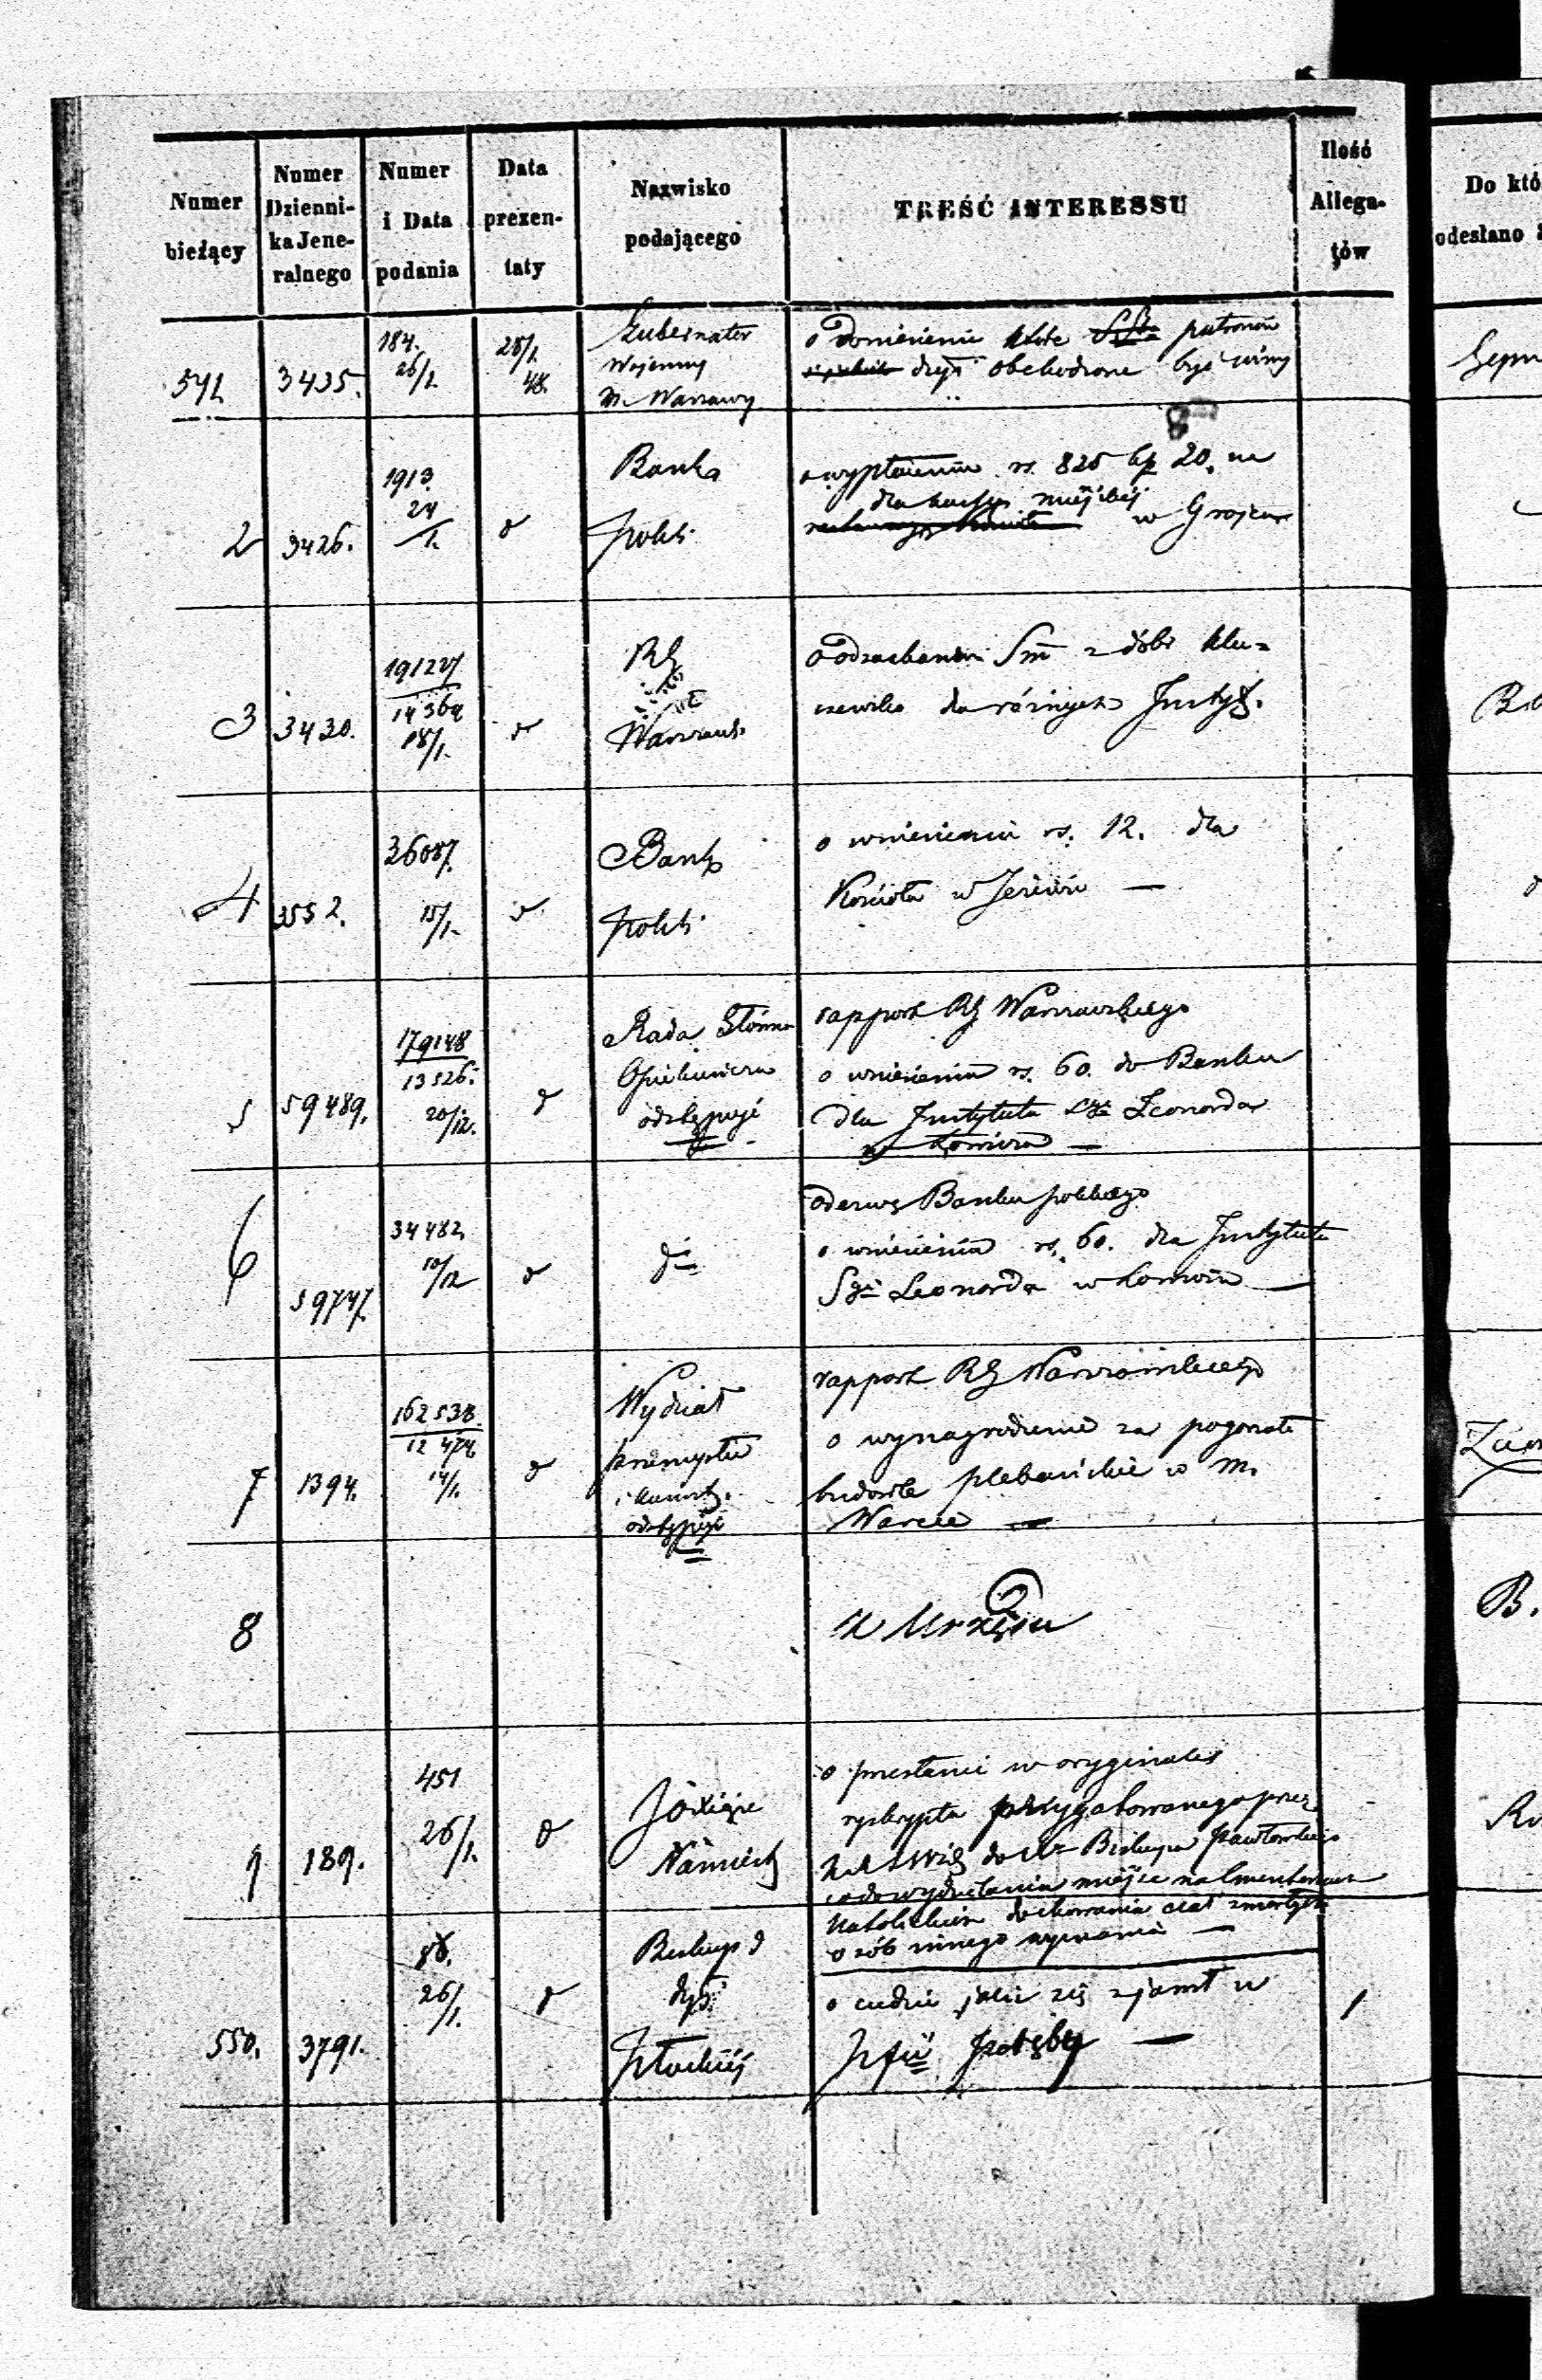 Numer bieżący
Numer Dzienni- ka Jene- ralnego
Numer i Data podania
Data prezen- taty
Nazwisko podającego
TREŚĆ INTERESSU
Ilość Allega- tów
Do któ
odesłano
541
3435.
184.
26/1
28/1.
48.
Gubernator
Wojenny
M. Warszawy
o doniesienie które patronów
dyś obchodzone być winny
2
3426.
1913.
24
/1.
d
Bank
Polski
o wypłaceniu rs. 825 kp 20. na
dla kassy miejskiej
w Grojcu
3
3430.
19127/
14364
18/1.
d
RG
Warszaws.
o odzaskaniu Sm z dóbr Klu-
czewsko dla różnych Instyt.
4
3552.
36087.
15/1.
d
Bank
Polski
o wniesieniu rs. 12. dla
Kościoła w Jeżewie —
5
59489.
179148
13526.
20/12.
d
Rada Główna
Opiekuńcza
odstępuje
rapport RG Warszawskiego
o wniesieniu rs. 60. do Banku
dla Instytutu Sgo Leonarda
w —
6
59747.
34482
10/12
d
do
odezwę Banku polskiego
o wniesieniu rs. 60. dla Instytutu
Sgo Leonarda w —
7
1394.
162538.
12474.
14/1.
d
Wydział
przemysłu
i kunszt.
odstępuje
rapport RG Warszawskiego
o wynagrodzenie za pogorzałe
budowle plebańskie w m.
Warcie —
Zwr
8
z Urzędu
B.
9
189.
451
26/1.
d
JO Xiąże
Namiest.
o przesłanie w oryginale
ryskryptu przygotowanego przez
do Biskupa Pawłowskiego
o dowydzielania miejsc na Cmentarzach
Katolickich do chowania ciał zmarłych
osób innego wyznania —
550.
3791.
26/1.
d
Biskup
dyś.
Płockiéj
o cudzie jaki się zjawił w
Pfii —
1